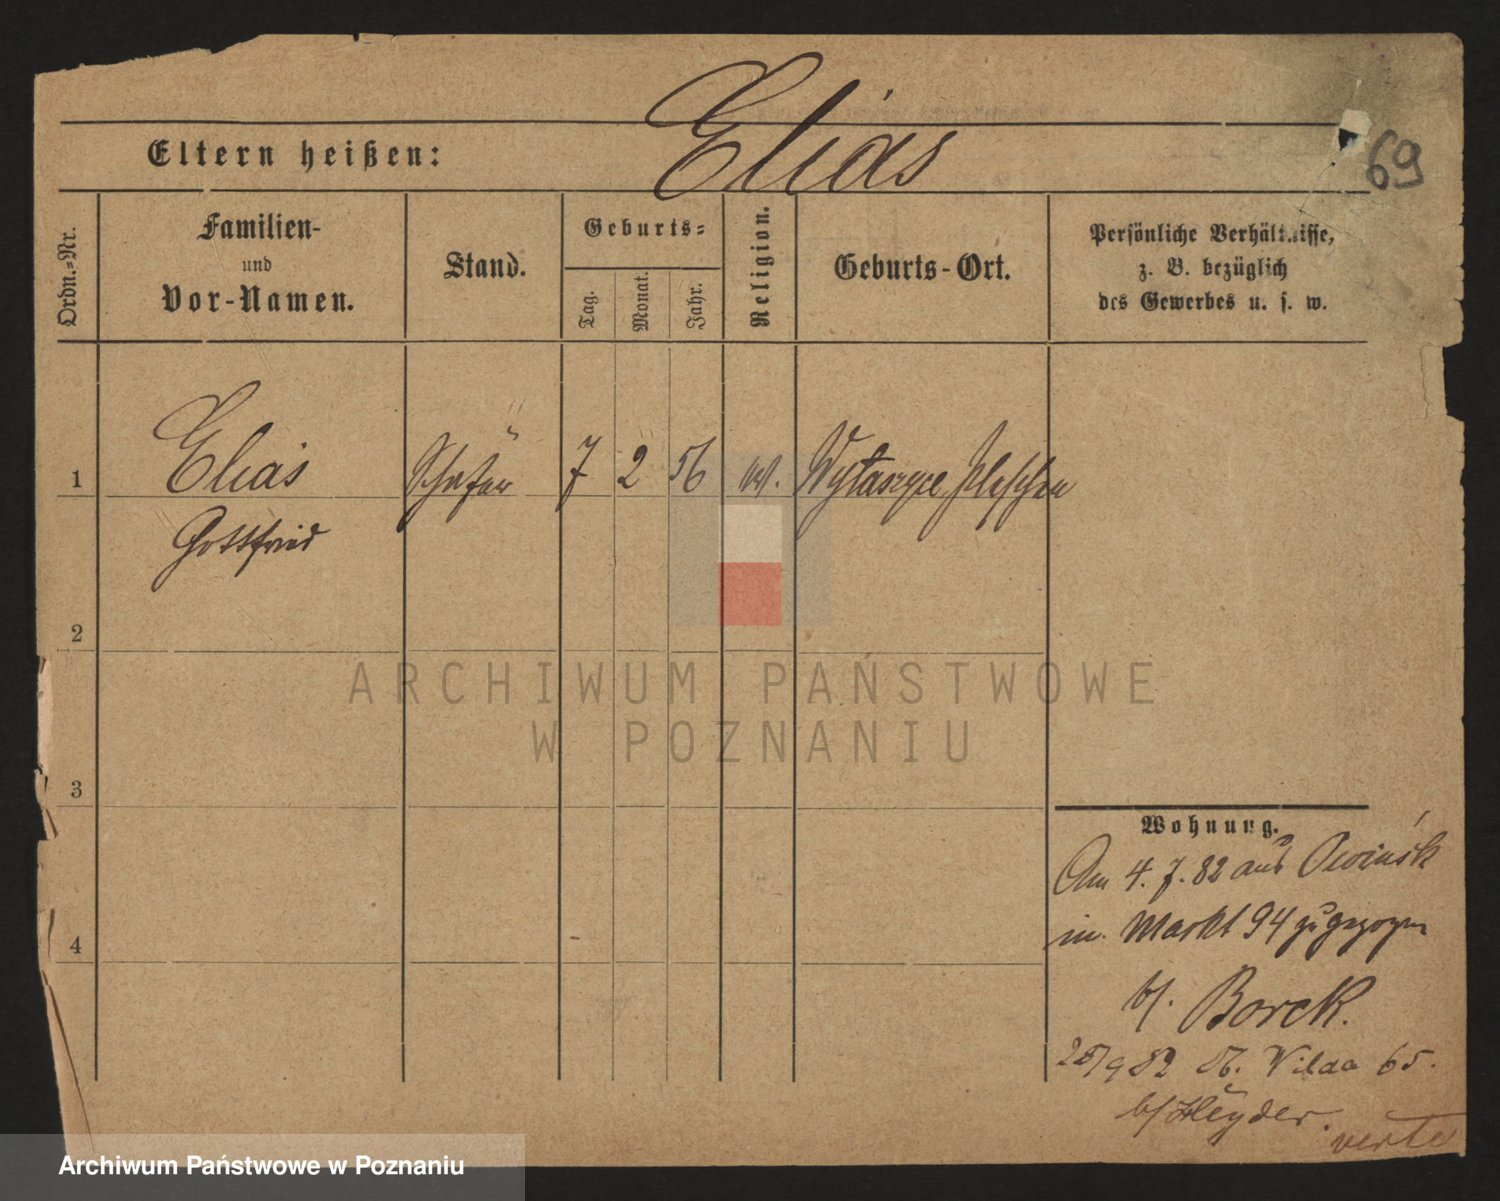 Elias
Eltern heißen:
69
Ordn.-Nr.
Familien-
und
Vor-Namen.
Stand.
Geburts-
Tag.
Monat.
Jahr.
Religion.
Geburts-Ort.
Persönliche Verhältnisse,
z. B. bezüglich
des Gewerbes u. s. w.
1
Elias
Gottfried
Schäfer
7
2
56
Wytaszyce Pleschen
2
3
4
ARCHIWUM PAŃSTWOWE
W POZNANIU
Wohnung.
Am 4. 7. 82 aus Owińsk
in Markt 94 zugezogen
b/. Borck.
25/9 82 Wilda 65.
b/ Heyder.
verte
Archiwum Państwowe w Poznaniu